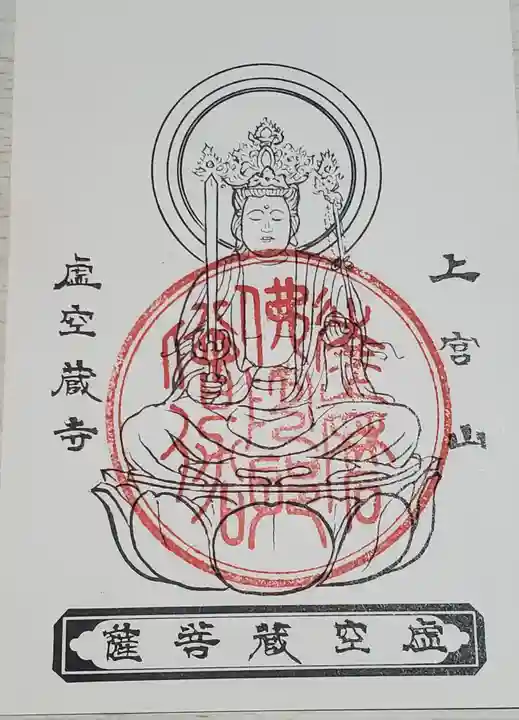 上宮山
虚空蔵寺
虚空蔵菩薩